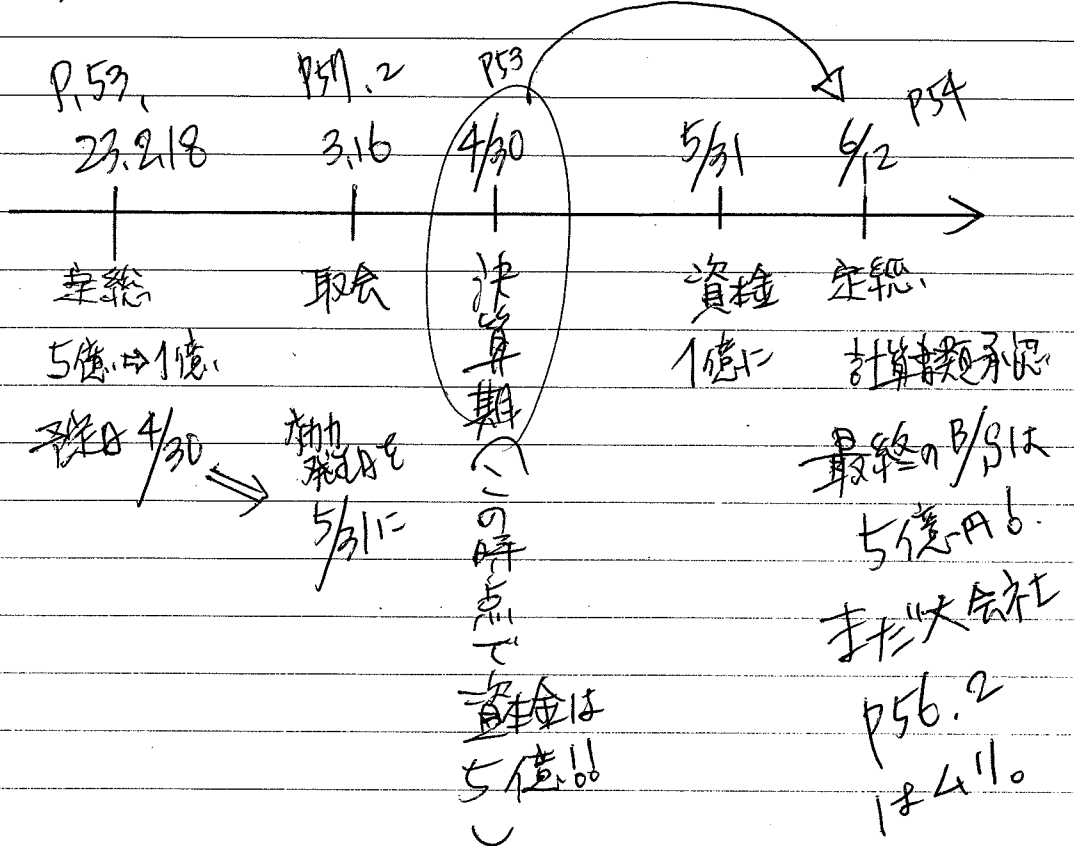 P.53.
23.2.18
定総
5億⇒1億
予定日4/30
P57.2
3.16
取会
効力
発生日を
5/31に
P53
4/30
決算期(この時点で
資本金は
5億!!)
5/31
資本金
1億に
P54
6/12
定総
計算書類承認
最終のB/Sは
5億円!
まだ大会社
P56.2